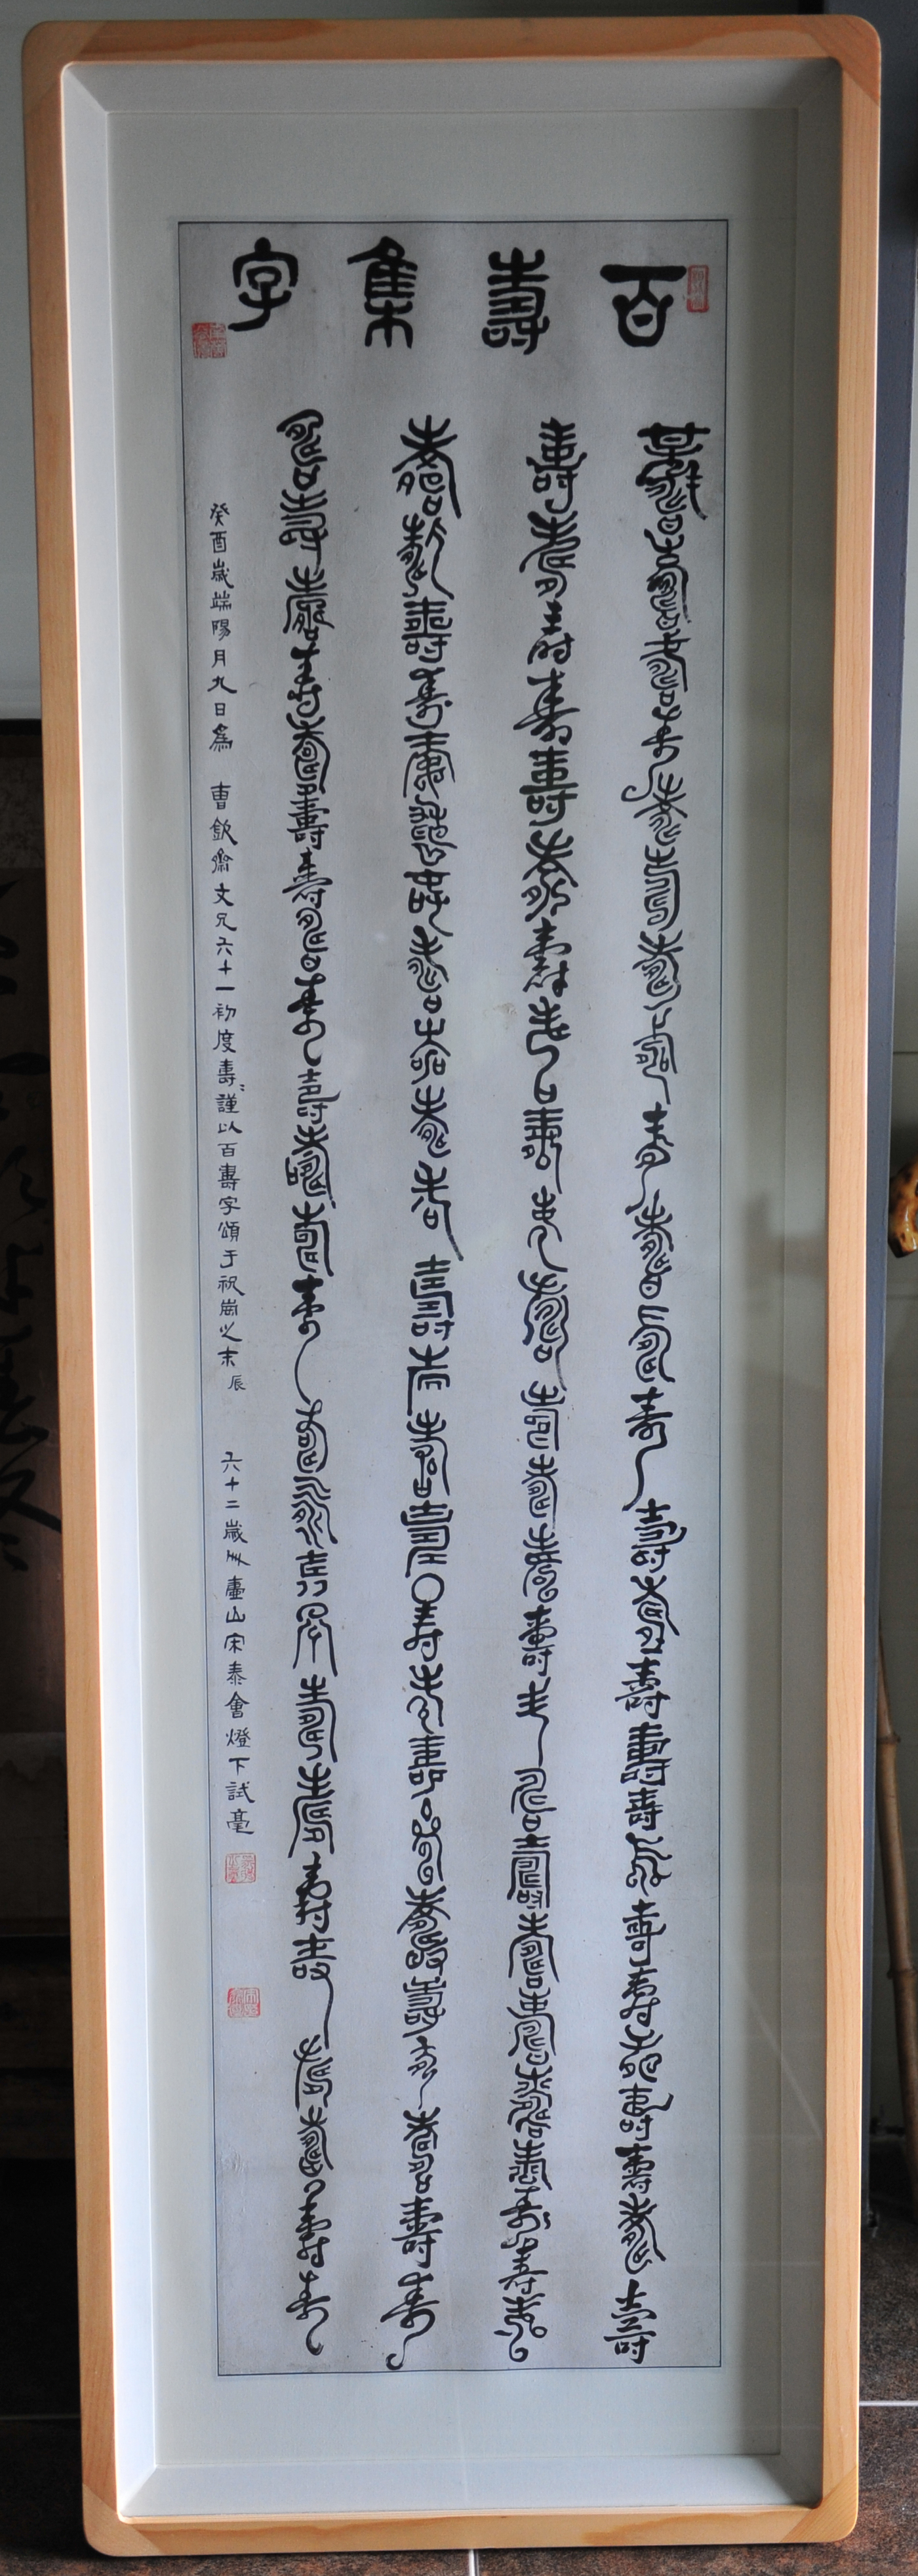 百壽集字
壽壽壽壽壽壽壽壽壽壽壽壽壽壽壽壽壽壽壽壽壽壽壽壽壽
壽壽壽壽壽壽壽壽壽壽壽壽壽壽壽壽壽壽壽壽壽壽壽壽壽
壽壽壽壽壽壽壽壽壽壽壽壽壽壽壽壽壽壽壽壽壽壽壽壽壽
壽壽壽壽壽壽壽壽壽壽壽壽壽壽壽壽壽壽壽壽壽壽壽壽壽
癸酉歲端陽月九日爲 曹欽齋文兄六十一初度壽謹以百壽字頌于祝之末辰 六十二歲壺山宋泰會燈下試毫